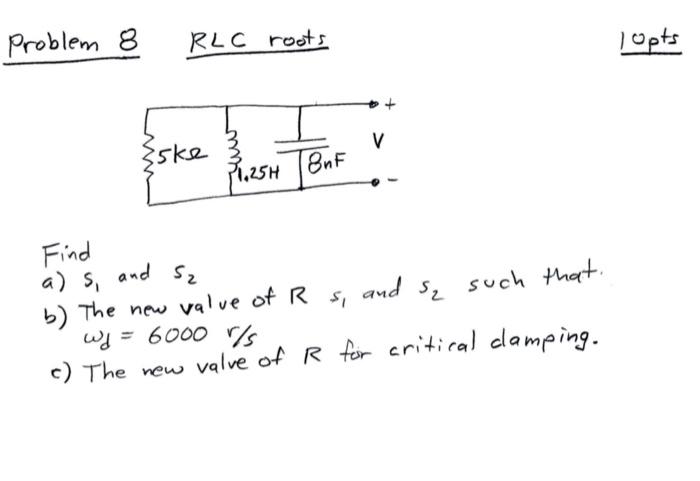 Problem 8 RLC roots 10pts
+
5kΩ 1.25H 8nF V
-
Find
a) s₁ and s₂
b) The new value of R s₁ and s₂ such that.
ωd = 6000 r/s
c) The new value of R for critical damping.